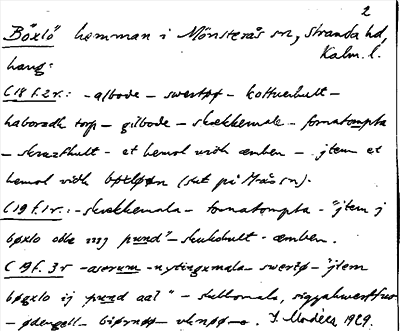 2
Böxlö hemman i Mönsterås sn, Stranda hd,
Kalm. l.
haug:
C 18 f. 2 r.: - albode - swertøø - kottuehult -
haboradh torp - gilbode - skækkemale - fornatompta
- skrazthult - et hemol vidh æmben - jtem et
hemol vidh bøtløøn (sct på Kråss sn).
C 19 f. 1 r.: - skækkemala - fornatompta - "jtem j
bøxlo otte mg pund" - skukohult - æmben.
C 19 f. 3 r - aserum - nytingxmala - swertø - "jtem
bøgxlo ij pund aal" -
- ødengell - biørnøø - J. Modéer 1929.